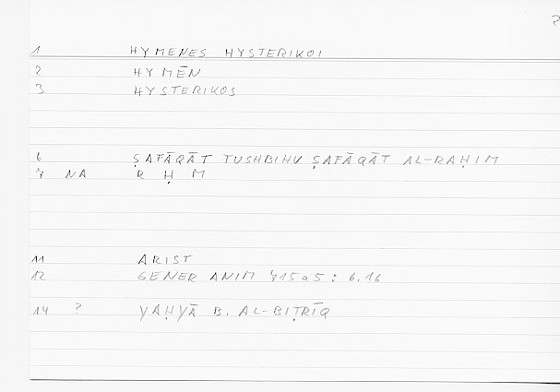 ?
1 HYMENES HYSTERIKOI
2 HYMĒN
3 HYSTERIKOS
6 ṢAFĀQĀT TUSHBIHU ṢAFĀQĀT AL-RAḤIM
7 NA R Ḥ M
11 ARIST
12 GENER ANIM 715a5 : 6,16
14 ? YAḤYĀ B. AL-BIṬRĪQ